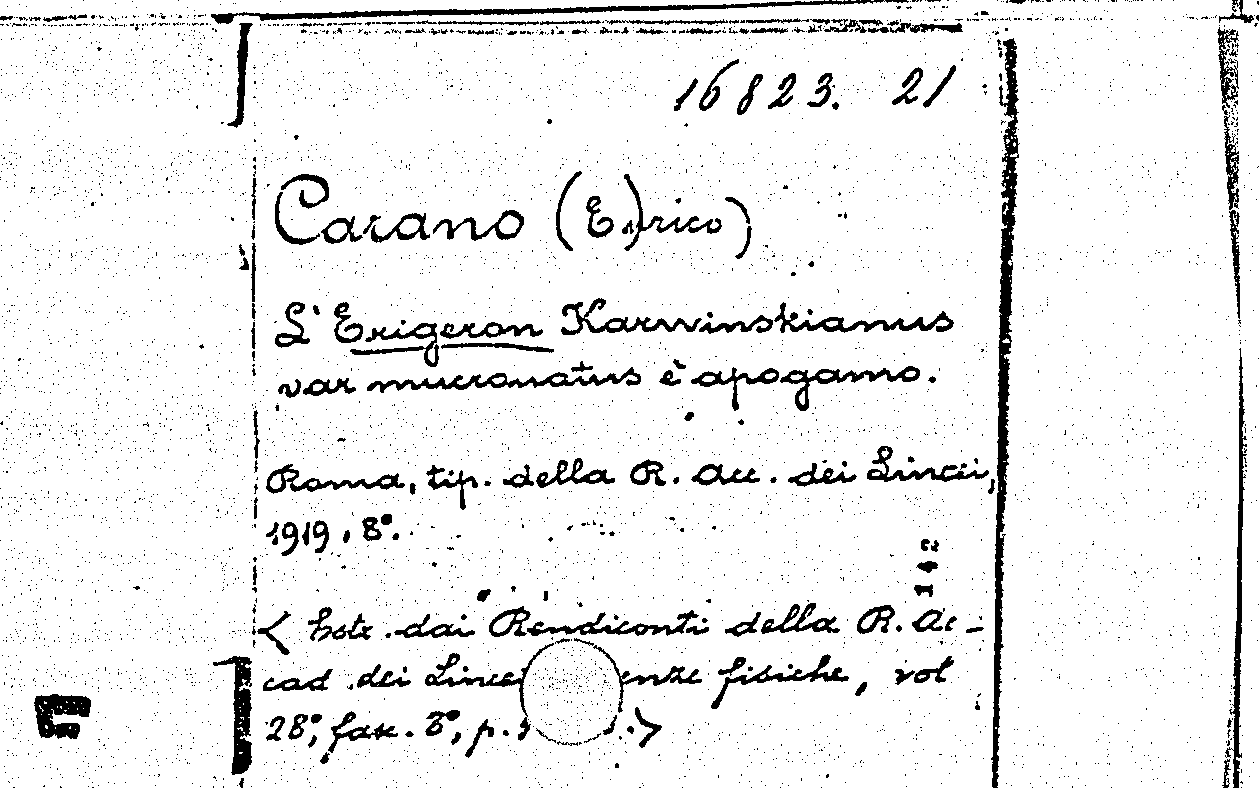 16823. 21
Carano (Enrico)
L'Erigeron Karwinskianus
var mucronatus è apogamo.
Roma, tip. della R. Acc. dei Lincei,
1919, 8°.
142
< Estr. dai Rendiconti della R. Ac-
cad dei Lincei enze fisiche, vol
28°, fasc. 3°, p. >